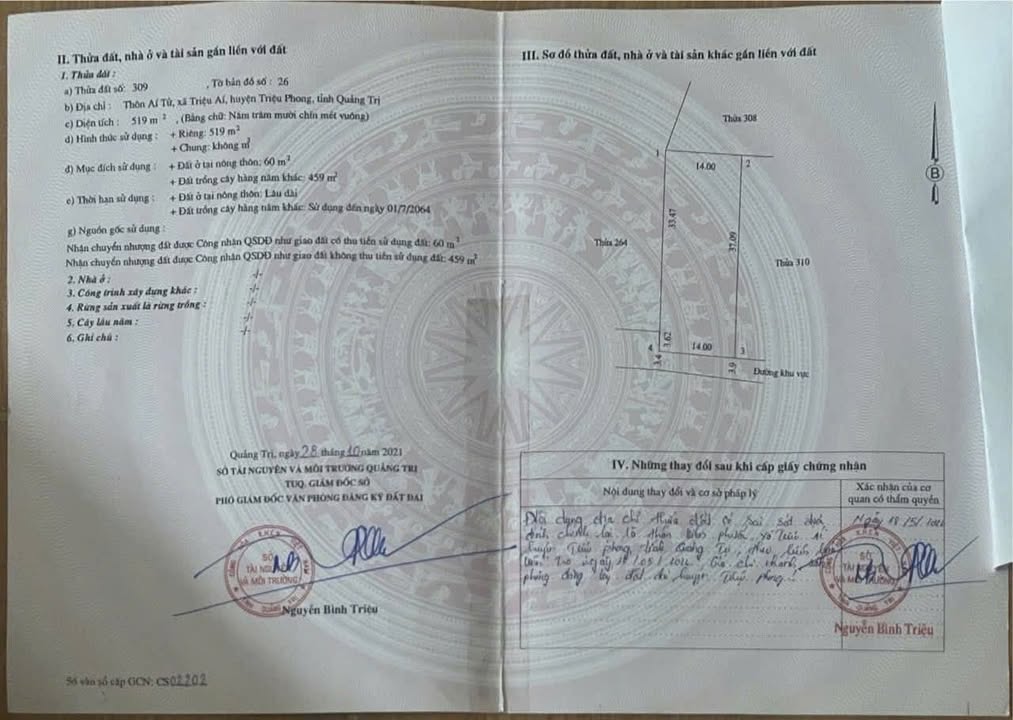 II. Thửa đất, nhà ở và tài sản gắn liền với đất
1. Thửa đất :
a) Thửa đất số: 309 , Tờ bản đồ số : 26
b) Địa chỉ : Thôn Ái Tử, xã Triệu Ái, huyện Triệu Phong, tỉnh Quảng Trị
c) Diện tích : 519 m² , (Bằng chữ: Năm trăm mười chín mét vuông)
d) Hình thức sử dụng : + Riêng: 519 m²
+ Chung: không m²
đ) Mục đích sử dụng : + Đất ở tại nông thôn: 60 m²
+ Đất trồng cây hàng năm khác: 459 m²
e) Thời hạn sử dụng : + Đất ở tại nông thôn: Lâu dài
+ Đất trồng cây hàng năm khác: Sử dụng đến ngày 01/7/2064
g) Nguồn gốc sử dụng :
Nhận chuyển nhượng đất được Công nhận QSDĐ như giao đất có thu tiền sử dụng đất: 60 m²
Nhận chuyển nhượng đất được Công nhận QSDĐ như giao đất không thu tiền sử dụng đất: 459 m²
2. Nhà ở : -/-
3. Công trình xây dựng khác : -/-
4. Rừng sản xuất là rừng trồng : -/-
5. Cây lâu năm : -/-
6. Ghi chú : -/-
Quảng Trị, ngày 28 tháng 10 năm 2021
SỞ TÀI NGUYÊN VÀ MÔI TRƯỜNG QUẢNG TRỊ
TUQ. GIÁM ĐỐC SỞ
PHÓ GIÁM ĐỐC VĂN PHÒNG ĐĂNG KÝ ĐẤT ĐAI
SỞ
TÀI NGUYÊN
VÀ MÔI TRƯỜNG
Nguyễn Bình Triệu
Số vào sổ cấp GCN: CS02202
III. Sơ đồ thửa đất, nhà ở và tài sản khác gắn liền với đất
Thửa 308
1
14.00
2
B
33.47
37.09
Thửa 264
Thửa 310
3.62
4
14.00
3
3.4
3.9
Đường khu vực
IV. Những thay đổi sau khi cấp giấy chứng nhận
Nội dung thay đổi và cơ sở pháp lý
Xác nhận của cơ quan có thẩm quyền
Nội dung địa chỉ thửa đất có sai sót được
đính chính lại là thôn
huyện Triệu Phong, tỉnh Quảng Trị,
phòng đăng ký đất đai huyện Triệu Phong
Ngày 18/5/
SỞ
TÀI NGUYÊN
VÀ MÔI TRƯỜNG
Nguyễn Bình Triệu